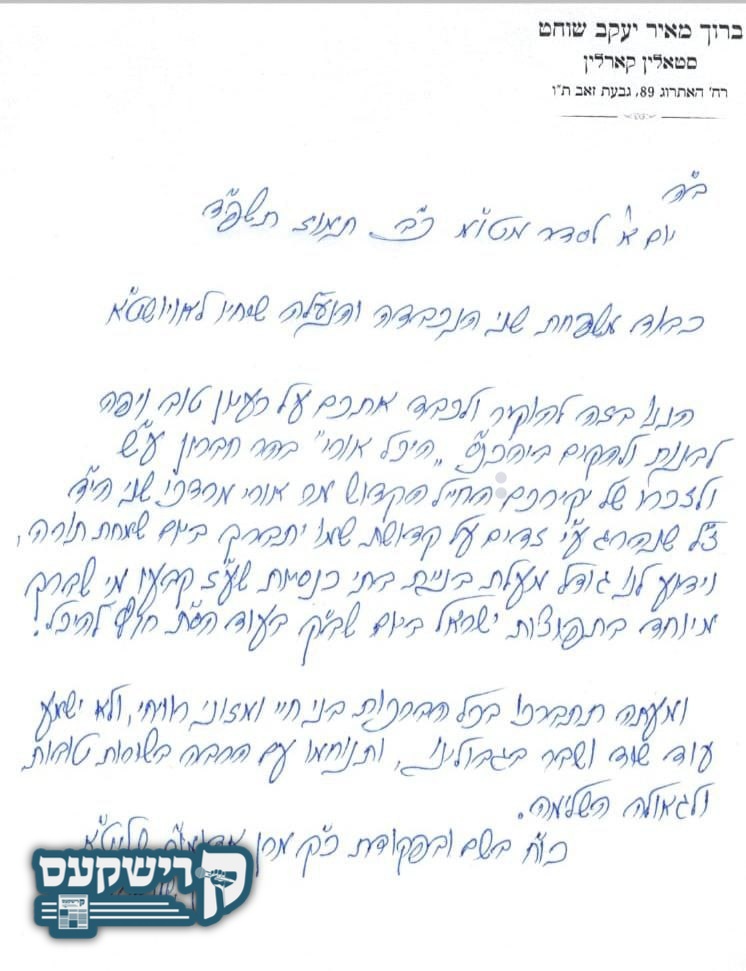 ברוך מאיר יעקב שוחט
סטאלין קארלין
רח' האתרוג 89, גבעת זאב ת"ו
ב"ה
יום א' לסדר מטו"מ כ"ב תמוז תשפ"ד
כבוד משפחת שני הנכבדה והנעלה שיחיו לאויושט"א
הננו בזה להוקיר ולכבד אתכם על רעיון טוב ויפה
לבנות ולהקים ביהכנ"ס "היכל אורי" בהר חברון ע"ש
ולזכרו של יקירכם החייל הקדוש מר אורי מרדכי שני הי"ד
ז"ל שנהרג ע"י זדים על קדושת שמו יתברך ביום שמחת תורה,
וידוע לנו גודל מעלת בניית בתי כנסיות שע"ז קבעו מי שברך
מיוחד בתפוצות ישראל ביום שב"ק בעוד הס"ת חוץ להיכל.
ומעתה תתברכו בכל הברכות בני חיי ומזוני רויחי, ולא ישמע
עוד שוד ושבר בגבולינו, ותנוחמו עם הרבה בשורות טובות
ולגאולה השלימה.
כו"ח בשם ובפקודת כ"ק מרן אדמו"ר שליט"א
קרישקעס